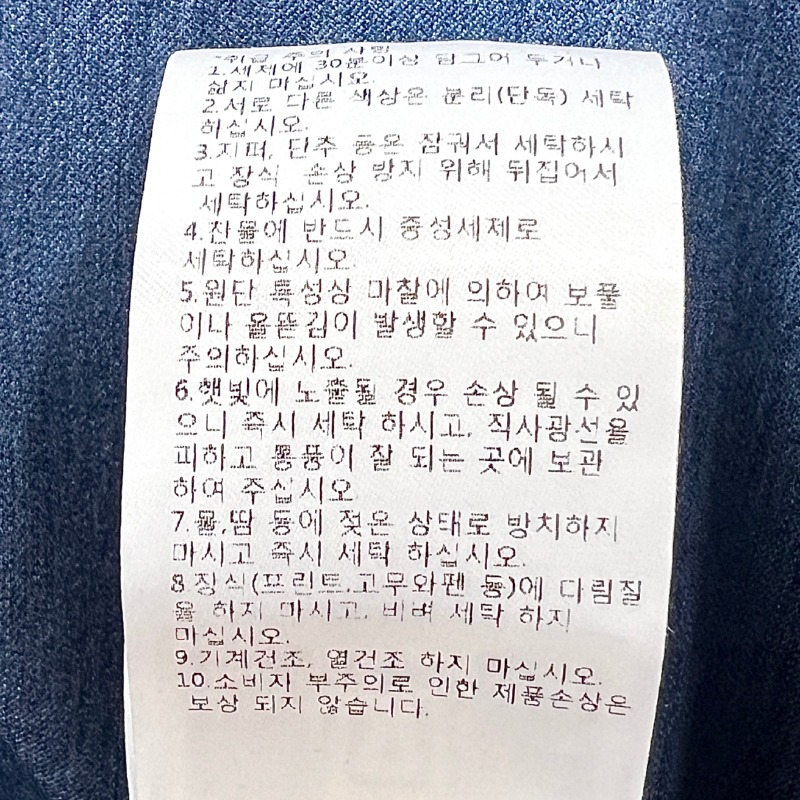 -취급 주의 사항
1.세제에 30분이상 담그어 두거나
삶지 마십시오.
2.서로 다른 색상은 분리(단독) 세탁
하십시오.
3.지퍼, 단추 등은 잠궈서 세탁하시
고 장식 손상 방지 위해 뒤집어서
세탁하십시오.
4.찬물에 반드시 중성세제로
세탁하십시오.
5.원단 특성상 마찰에 의하여 보풀
이나 올뜯김이 발생할 수 있으니
주의하십시오.
6.햇빛에 노출될 경우 손상 될 수 있
으니 즉시 세탁 하시고, 직사광선을
피하고 통풍이 잘 되는 곳에 보관
하여 주십시오
7.물,땀 등에 젖은 상태로 방치하지
마시고 즉시 세탁 하십시오.
8.장식(프린트,고무와펜 등)에 다림질
을 하지 마시고, 비벼 세탁 하지
마십시오.
9.기계건조, 열건조 하지 마십시오.
10.소비자 부주의로 인한 제품손상은
보상 되지 않습니다.